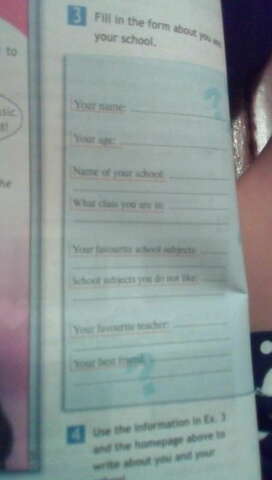 to
sic
3 Fill in the form about you and
your school.
he
Your name:
Your age:
Name of your school:
What class you are in:
Your favourite school subjects:
School subjects you do not like:
Your favourite teacher:
Your best friend:
4 Use the information in Ex. 3
and the homepage above to
write about you and your
school.